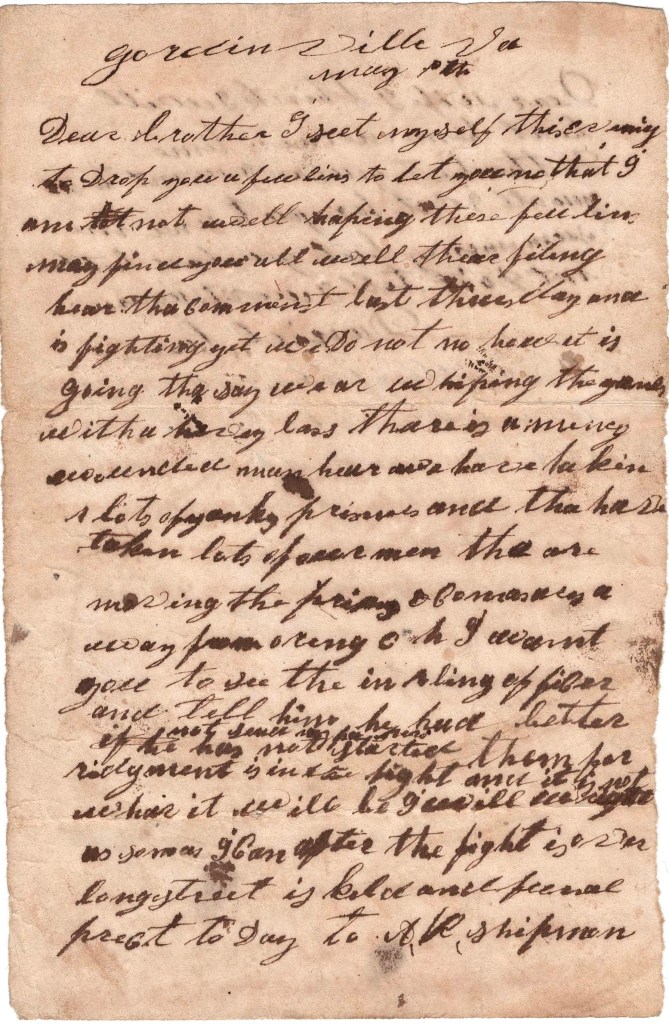 gordin ville Va
may 8th
Dear brother I seet myself this evning
to Drop you a few lins to let you no that I
am not well hoping these few lins
may find you all well thear fiting
hear tha comment last thursday and
is fighting yet we Do not no how it is
going tha say we ar whiping the yankes
with a hevy lass thare is a mency
wounded man hear we have takin
lots of yanky prisnes and tha have
taken lots of our men tha are
moving the comasary a
way from oreng c h I want
you to see the in rling officer
and tell him he had better
not send my
if he has not started them for
ridgment is in the fight and it is not
whar it will be I will
as soon as I can after the fight is over
longstreet is keld and
to Day to A, R, Shipman